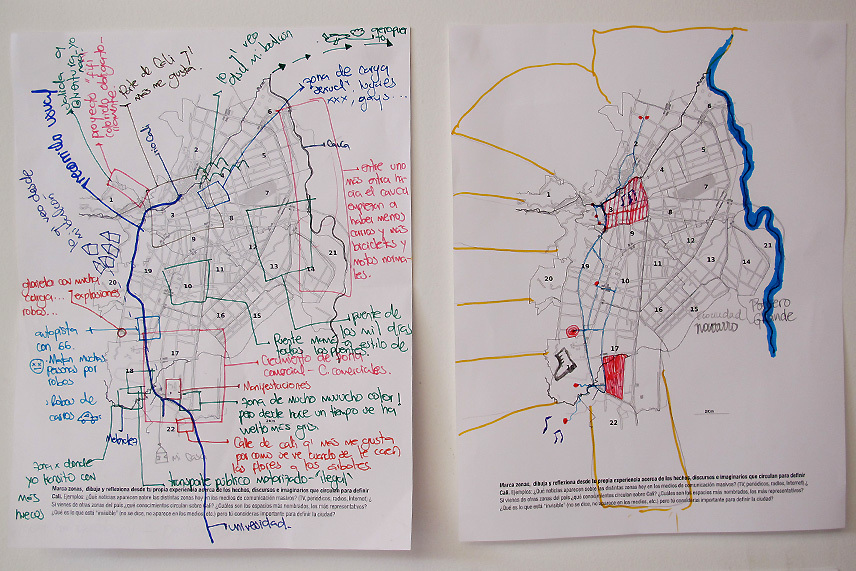 aeropuerto
yo q' veo
desde mi balcón
Parte de Cali q'
más me gusta.
zona de carga
"sexual", lugares
xxx, gays...
proyecto "fifi"
Recorrido usual
Río Cali
Cauca
entre uno
más entra ha-
cia el cauca
empiezan a
haber menos
carros y más
bicicletas y
motos norma-
les.
lo q' veo desde
mi balcón
1
2
3
4
5
6
7
8
9
10
11
12
13
14
15
16
17
18
19
20
21
22
glorieta con mucha
carga... explosiones
robos...
autopista
con 66.
Matan muchas
personas por
robos
Robos de
carros
puente de
los mil días
Crecimiento de zona
comercial - C. comerciales.
Manifestaciones
zona de mucho muuucho color!
pero desde hace un tiempo se ha
vuelto más gris
Mi casa
Calle de cali q' más me gusta
por como se ve cuando se le caen
las flores a los árboles.
zona x donde
yo transito con
más
transporte público motorizado - "ilegal"
universidad
Marca zonas, dibuja y reflexiona desde tu propia experiencia acerca de los hechos, discursos e imaginarios que circulan para definir
Cali. Ejemplos: ¿Qué noticias aparecen sobre las distintas zonas hoy en los medios de comunicación masivos? (TV, periódicos, radios, Internet) ¿
Si vienes de otras zonas del país ¿qué conocimientos circulan sobre Cali? ¿Cuáles son los espacios más nombrados, los más representativos?
¿Qué es lo que está "invisible" (no se dice, no aparece en los medios, etc.) pero lo consideras importante para definir la ciudad?
1
2
3
4
5
6
7
8
9
10
11
12
13
14
15
16
17
19
20
21
22
Potrero
Grande
navarro
2Km
Marca zonas, dibuja y reflexiona desde tu propia experiencia acerca de los hechos, discursos e imaginarios que circulan para definir
Cali. Ejemplos: ¿Qué noticias aparecen sobre las distintas zonas hoy en los medios de comunicación masivos? (TV, periódicos, radios, Internet) ¿
Si vienes de otras zonas del país ¿qué conocimientos circulan sobre Cali? ¿Cuáles son los espacios más nombrados, los más representativos?
¿Qué es lo que está "invisible" (no se dice, no aparece en los medios, etc.) pero lo consideras importante para definir la ciudad?